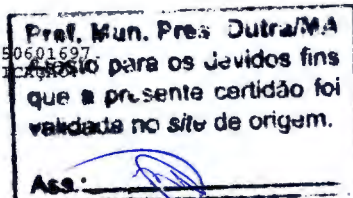 Pref. Mun. Pres Dutra/MA
50601697
Atesto para os devidos fins
que a presente certidão foi
validada no site de origem.
Ass.: